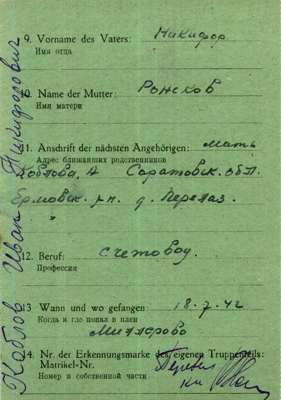 Коблов Иван Никифорович
9. Vorname des Vaters: Никифор
Имя отца
10. Name der Mutter: Рожков
Имя матери
11. Anschrift der nächsten Angehörigen: мать
Адрес ближайших родственников
Коблова, А Саратовск. обл.
р-н. д. Перелаз.
12. Beruf: Счетовод.
Профессия
13 Wann und wo gefangen: 18.7.42
Когда и где попал в плен
Миллерово
14. Nr. der Erkennungsmarke des eigenen Truppenteils:
Matrikel-Nr.
Номер в собственной части